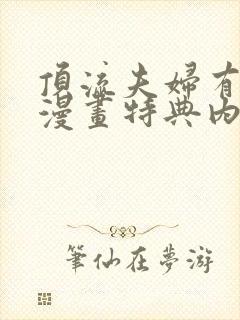 頂流夫婦有
漫畫特典內
筆仙在夢游